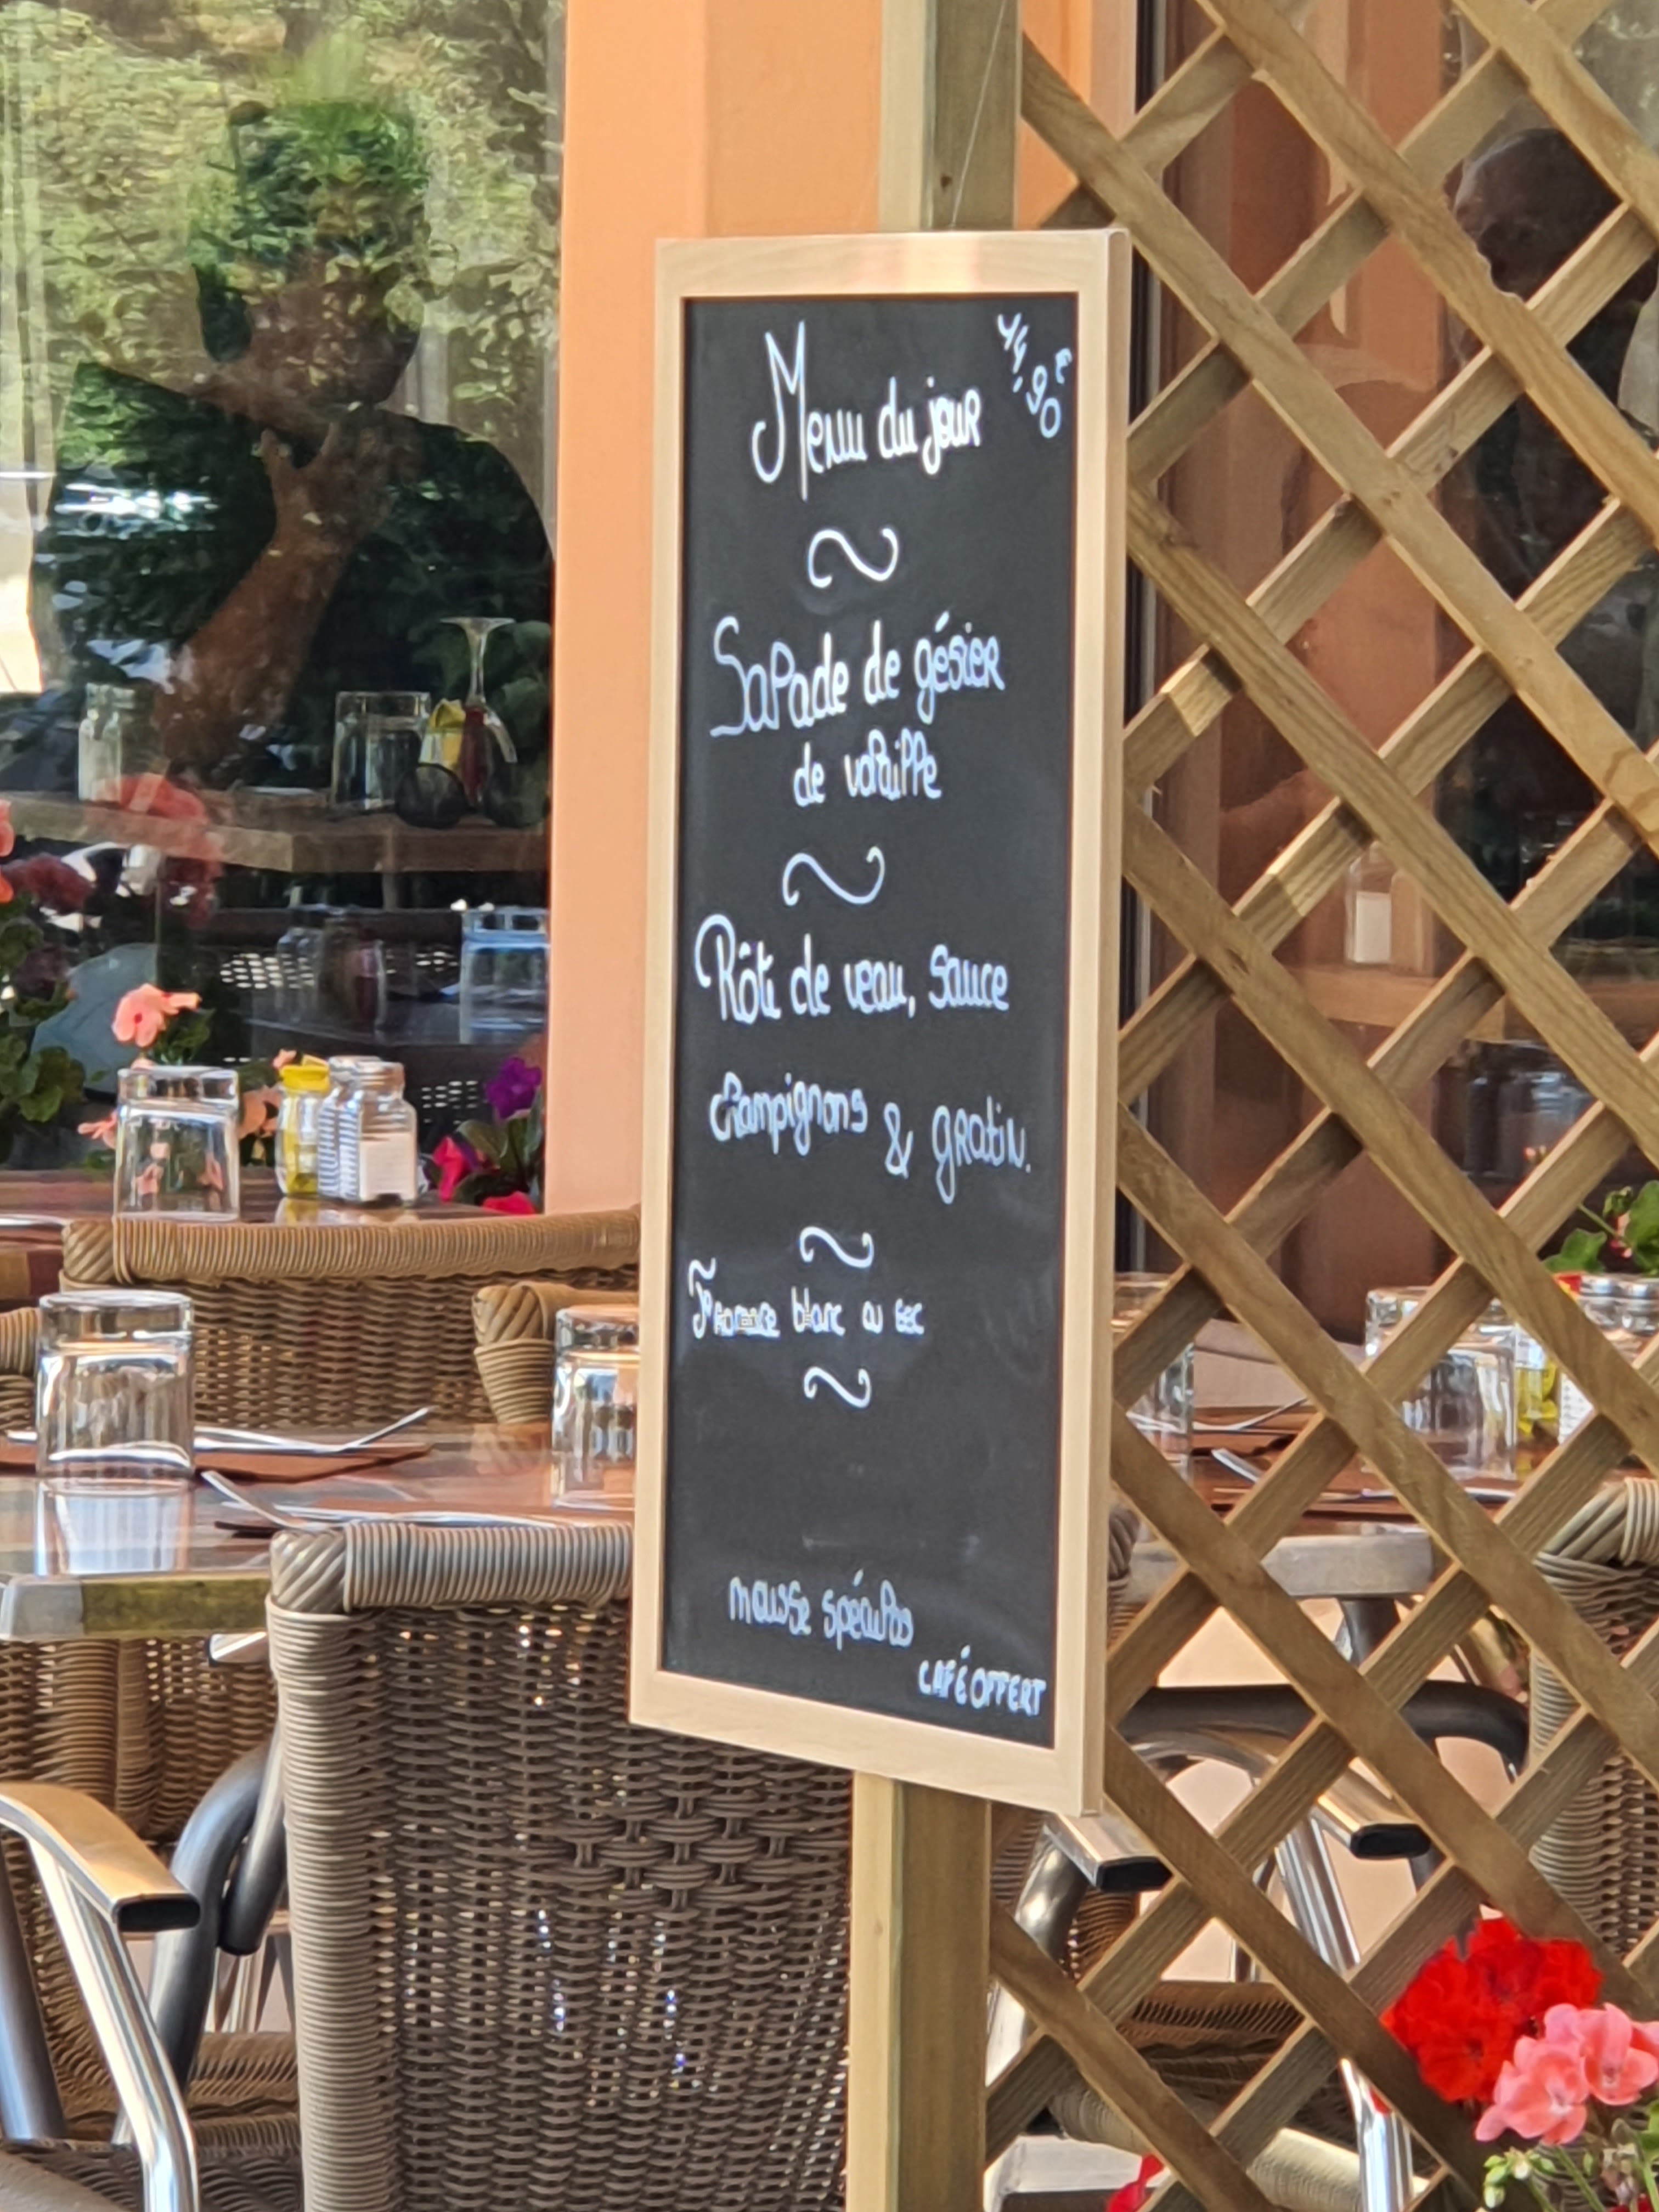 Menu du jour
14,90€
Salade de gésier
de volaille
Rôti de veau, sauce
champignons & gratin.
Fromage blanc ou sec
mousse spéculos
CAFÉ OFFERT